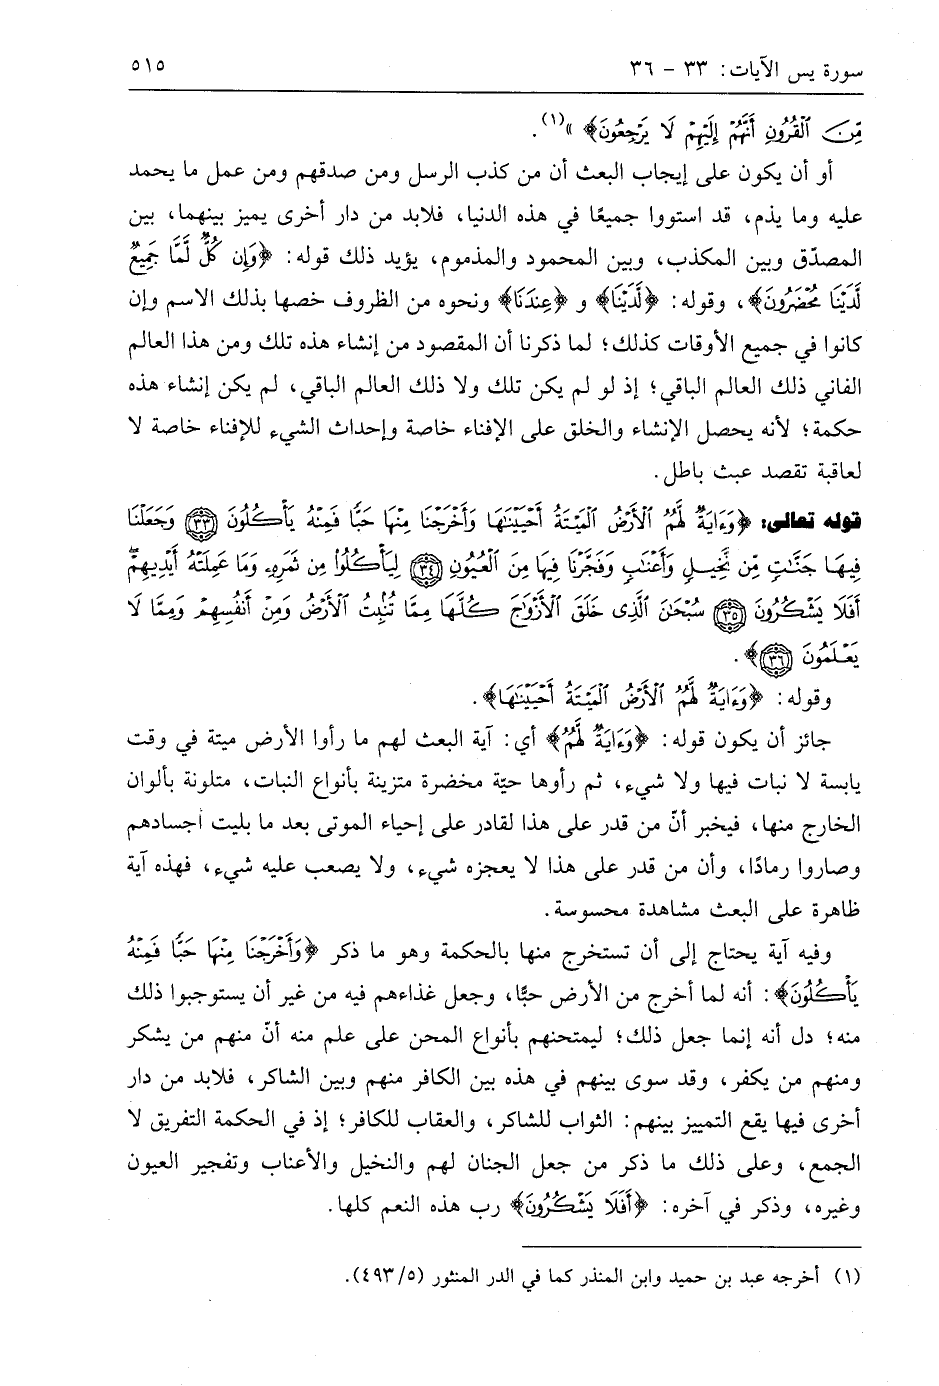 سورة يس الآيات: ٣٣ - ٣٦
٥١٥
مِّنَ ٱلْقُرُونِ أَنَّهُمْ إِلَيْهِمْ لَا يَرْجِعُونَ﴾ »(١).
أو أن يكون على إيجاب البعث أن من كذب الرسل ومن صدقهم ومن عمل ما يحمد
عليه وما يذم، قد استووا جميعًا في هذه الدنيا، فلابد من دار أخرى يميز بينهما، بين
المصدّق وبين المكذب، وبين المحمود والمذموم، يؤيد ذلك قوله: ﴿وَإِن كُلٌّ لَّمَّا جَمِيعٌ
لَّدَيْنَا مُحْضَرُونَ﴾، وقوله: ﴿لَّدَيْنَا﴾ و ﴿عِندَنَا﴾ ونحوه من الظروف خصها بذلك الاسم وإن
كانوا في جميع الأوقات كذلك؛ لما ذكرنا أن المقصود من إنشاء هذه تلك ومن هذا العالم
الفاني ذلك العالم الباقي؛ إذ لو لم يكن تلك ولا ذلك العالم الباقي، لم يكن إنشاء هذه
حكمة؛ لأنه يحصل الإنشاء والخلق على الإفناء خاصة وإحداث الشيء للإفناء خاصة لا
لعاقبة تقصد عبث باطل.
قوله تعالى: ﴿وَءَايَةٌ لَّهُمُ ٱلْأَرْضُ ٱلْمَيْتَةُ أَحْيَيْنَٰهَا وَأَخْرَجْنَا مِنْهَا حَبًّا فَمِنْهُ يَأْكُلُونَ ﴿٣٣﴾ وَجَعَلْنَا
فِيهَا جَنَّٰتٍ مِّن نَّخِيلٍ وَأَعْنَٰبٍ وَفَجَّرْنَا فِيهَا مِنَ ٱلْعُيُونِ ﴿٣٤﴾ لِيَأْكُلُوا۟ مِن ثَمَرِهِۦ وَمَا عَمِلَتْهُ أَيْدِيهِمْ ۖ
أَفَلَا يَشْكُرُونَ ﴿٣٥﴾ سُبْحَٰنَ ٱلَّذِى خَلَقَ ٱلْأَزْوَٰجَ كُلَّهَا مِمَّا تُنۢبِتُ ٱلْأَرْضُ وَمِنْ أَنفُسِهِمْ وَمِمَّا لَا
يَعْلَمُونَ ﴿٣٦﴾﴾.
وقوله: ﴿وَءَايَةٌ لَّهُمُ ٱلْأَرْضُ ٱلْمَيْتَةُ أَحْيَيْنَٰهَا﴾.
جائز أن يكون قوله: ﴿وَءَايَةٌ لَّهُمُ﴾ أي: آية البعث لهم ما رأوا الأرض ميتة في وقت
يابسة لا نبات فيها ولا شيء، ثم رأوها حيّة مخضرة متزينة بأنواع النبات، متلونة بألوان
الخارج منها، فيخبر أنّ من قدر على هذا لقادر على إحياء الموتى بعد ما بليت أجسادهم
وصاروا رمادًا، وأن من قدر على هذا لا يعجزه شيء، ولا يصعب عليه شيء، فهذه آية
ظاهرة على البعث مشاهدة محسوسة.
وفيه آية يحتاج إلى أن تستخرج منها بالحكمة وهو ما ذكر ﴿وَأَخْرَجْنَا مِنْهَا حَبًّا فَمِنْهُ
يَأْكُلُونَ﴾: أنه لما أخرج من الأرض حبًّا، وجعل غذاءهم فيه من غير أن يستوجبوا ذلك
منه؛ دل أنه إنما جعل ذلك؛ ليمتحنهم بأنواع المحن على علم منه أنّ منهم من يشكر
ومنهم من يكفر، وقد سوى بينهم في هذه بين الكافر منهم وبين الشاكر، فلابد من دار
أخرى فيها يقع التمييز بينهم: الثواب للشاكر، والعقاب للكافر؛ إذ في الحكمة التفريق لا
الجمع، وعلى ذلك ما ذكر من جعل الجنان لهم والنخيل والأعناب وتفجير العيون
وغيره، وذكر في آخره: ﴿أَفَلَا يَشْكُرُونَ﴾ رب هذه النعم كلها.
(١) أخرجه عبد بن حميد وابن المنذر كما في الدر المنثور (٤٩٣/٥).